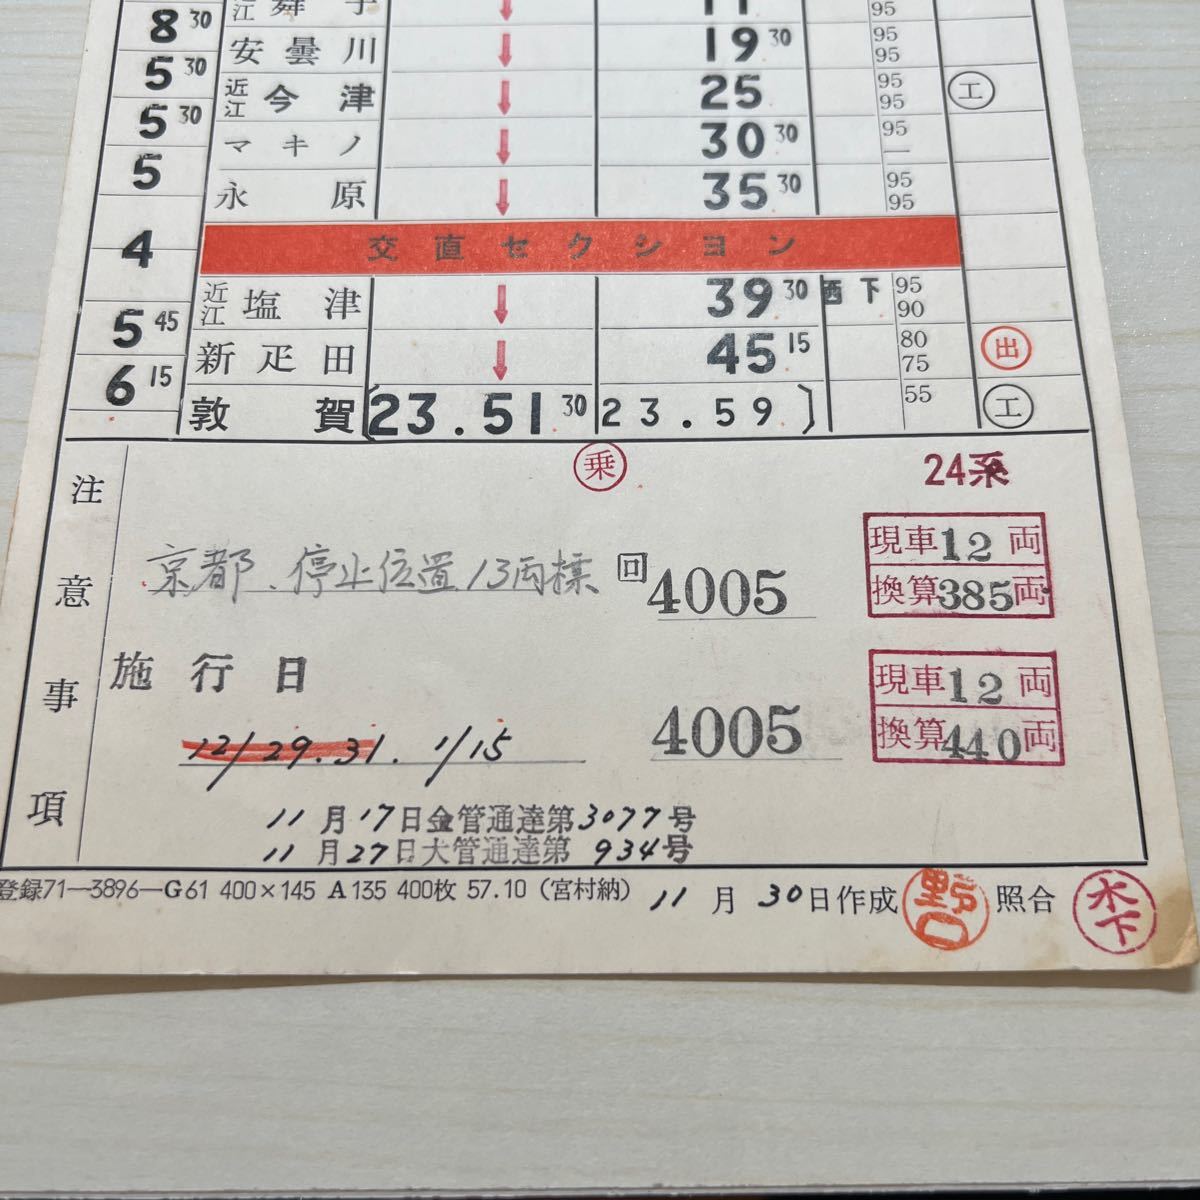 8 30 江 舞 子 11 95
5 30 安 曇 川 19 30 95 95
5 30 近江 今 津 25 95 95 工
5 マ キ ノ 30 30 95 ―
永 原 35 30 95 95
4 交 直 セ ク シ ヨ ン
近江 塩 津 39 30 西 下 95 90
5 45 新 疋 田 45 15 80 75 出
6 15 敦 賀 23.51 30 23.59 55 工
注意事項
乗 24系
京都、停止位置13両標 回 4005 現車12両
換算385両
施行日
12/29.31. 1/15 4005 現車12両
換算440両
11月17日金管通達第3077号
11月27日大管通達第 934号
登録71―3896―G61 400×145 A135 400枚 57.10 (宮村納) 11月30日作成 野口 照合 木下